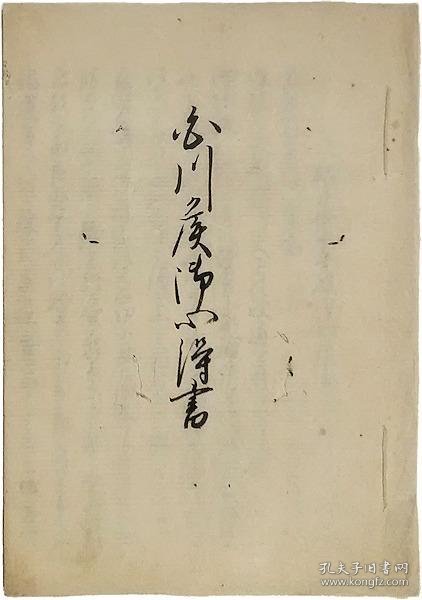 白川侯御心得書
孔夫子旧书网
www.kongfz.com